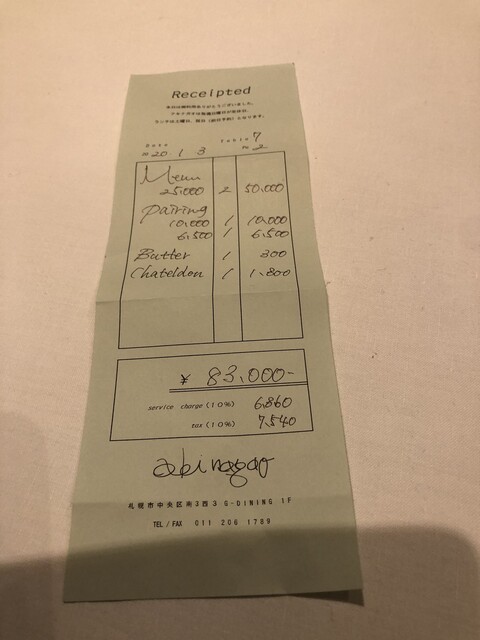 Receipted
本日は御利用ありがとうございました。
Date Table 7
20 1 3 2
Menu
25,000 2 50,000
Pairing
10,000 1 10,000
6,500 1 6,500
Butter 1 300
Chateldon 1 1,800
¥ 83,000-
service charge (10%) 6,860
tax (10%) 7,540
aki nagao
札幌市中央区南3西3 G-DINING 1F
TEL / FAX 011 206 1789